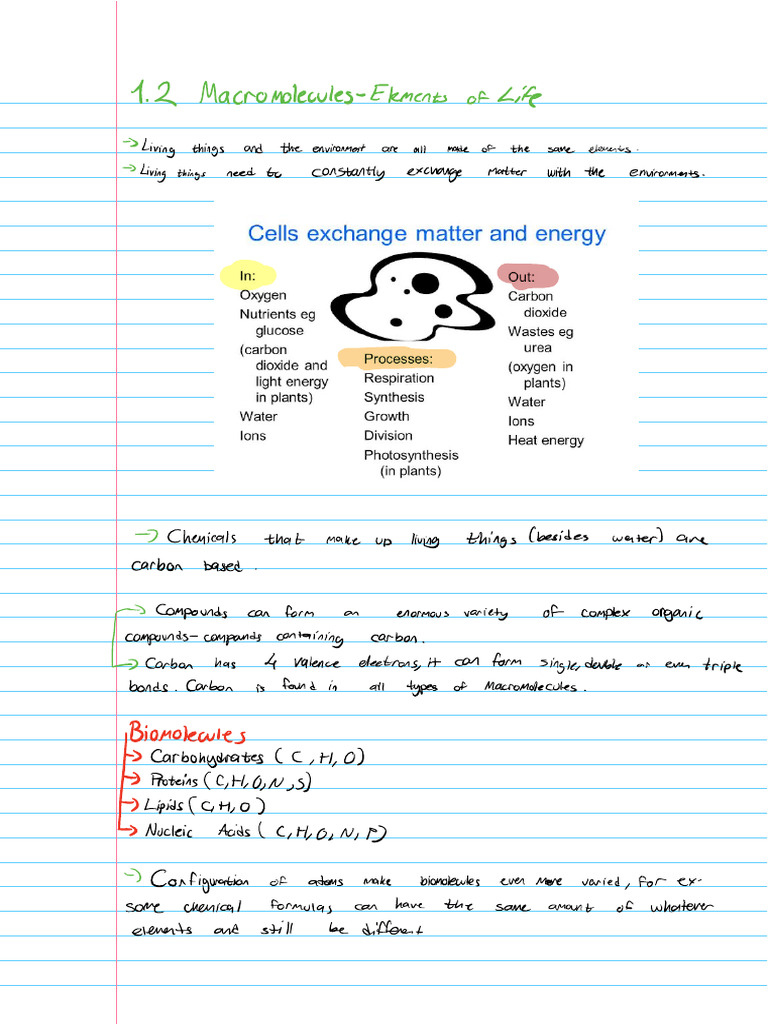 1.2 Macromolecules-Elements of Life
→ Living things and the environment are all made of the same elements.
→ Living things need to constantly exchange matter with the environments.
Cells exchange matter and energy
In:
Oxygen
Nutrients eg
glucose
(carbon
dioxide and
light energy
in plants)
Water
Ions
Processes:
Respiration
Synthesis
Growth
Division
Photosynthesis
(in plants)
Out:
Carbon
dioxide
Wastes eg
urea
(oxygen in
plants)
Water
Ions
Heat energy
→ Chemicals that make up living things (besides water) are
carbon based.
→ Compounds can form an enormous variety of complex organic
compounds-compounds containing carbon.
→ Carbon has 4 valence electrons, it can form single, double or even triple
bonds. Carbon is found in all types of Macromolecules.
Biomolecules
→ Carbohydrates (C, H, O)
→ Proteins (C, H, O, N, S)
→ Lipids (C, H, O)
→ Nucleic Acids (C, H, O, N, P)
→ Configuration of atoms make biomolecules even more varied, for ex-
some chemical formulas can have the same amount of whatever
elements and still be different